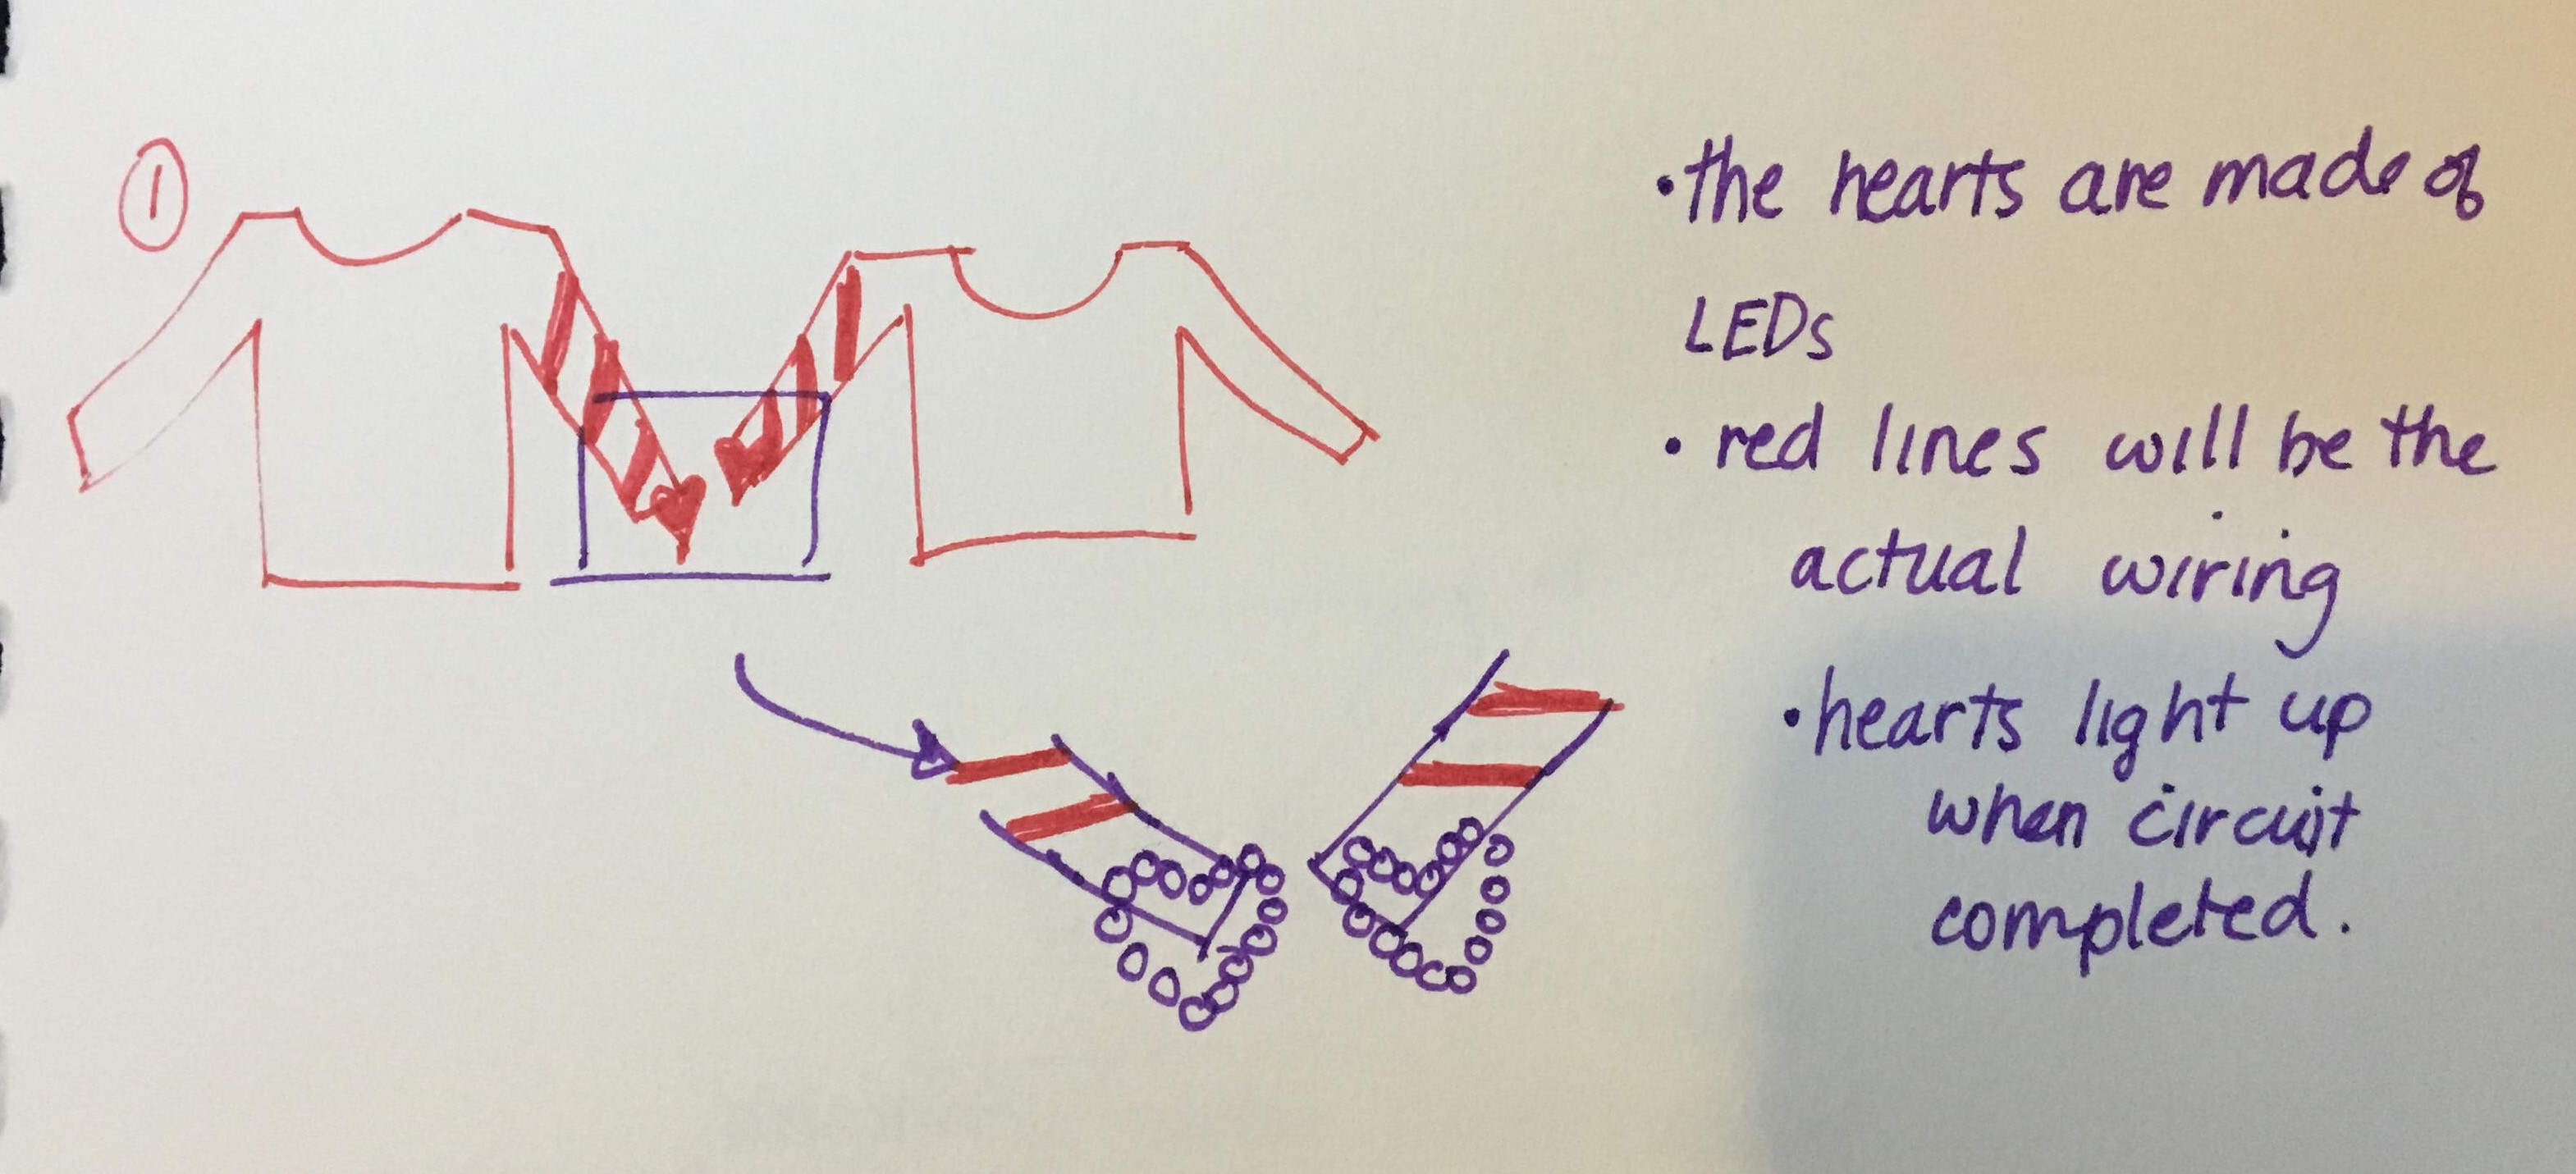 ①
•the hearts are made of
LEDs
• red lines will be the
actual wiring
•hearts light up
when circuit
completed.